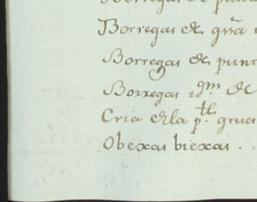 Borregas de
Borregas de gũa
Borregas de punt
Borregas ygm. de
Cria de la p.tl grues
Obexas biexas . .